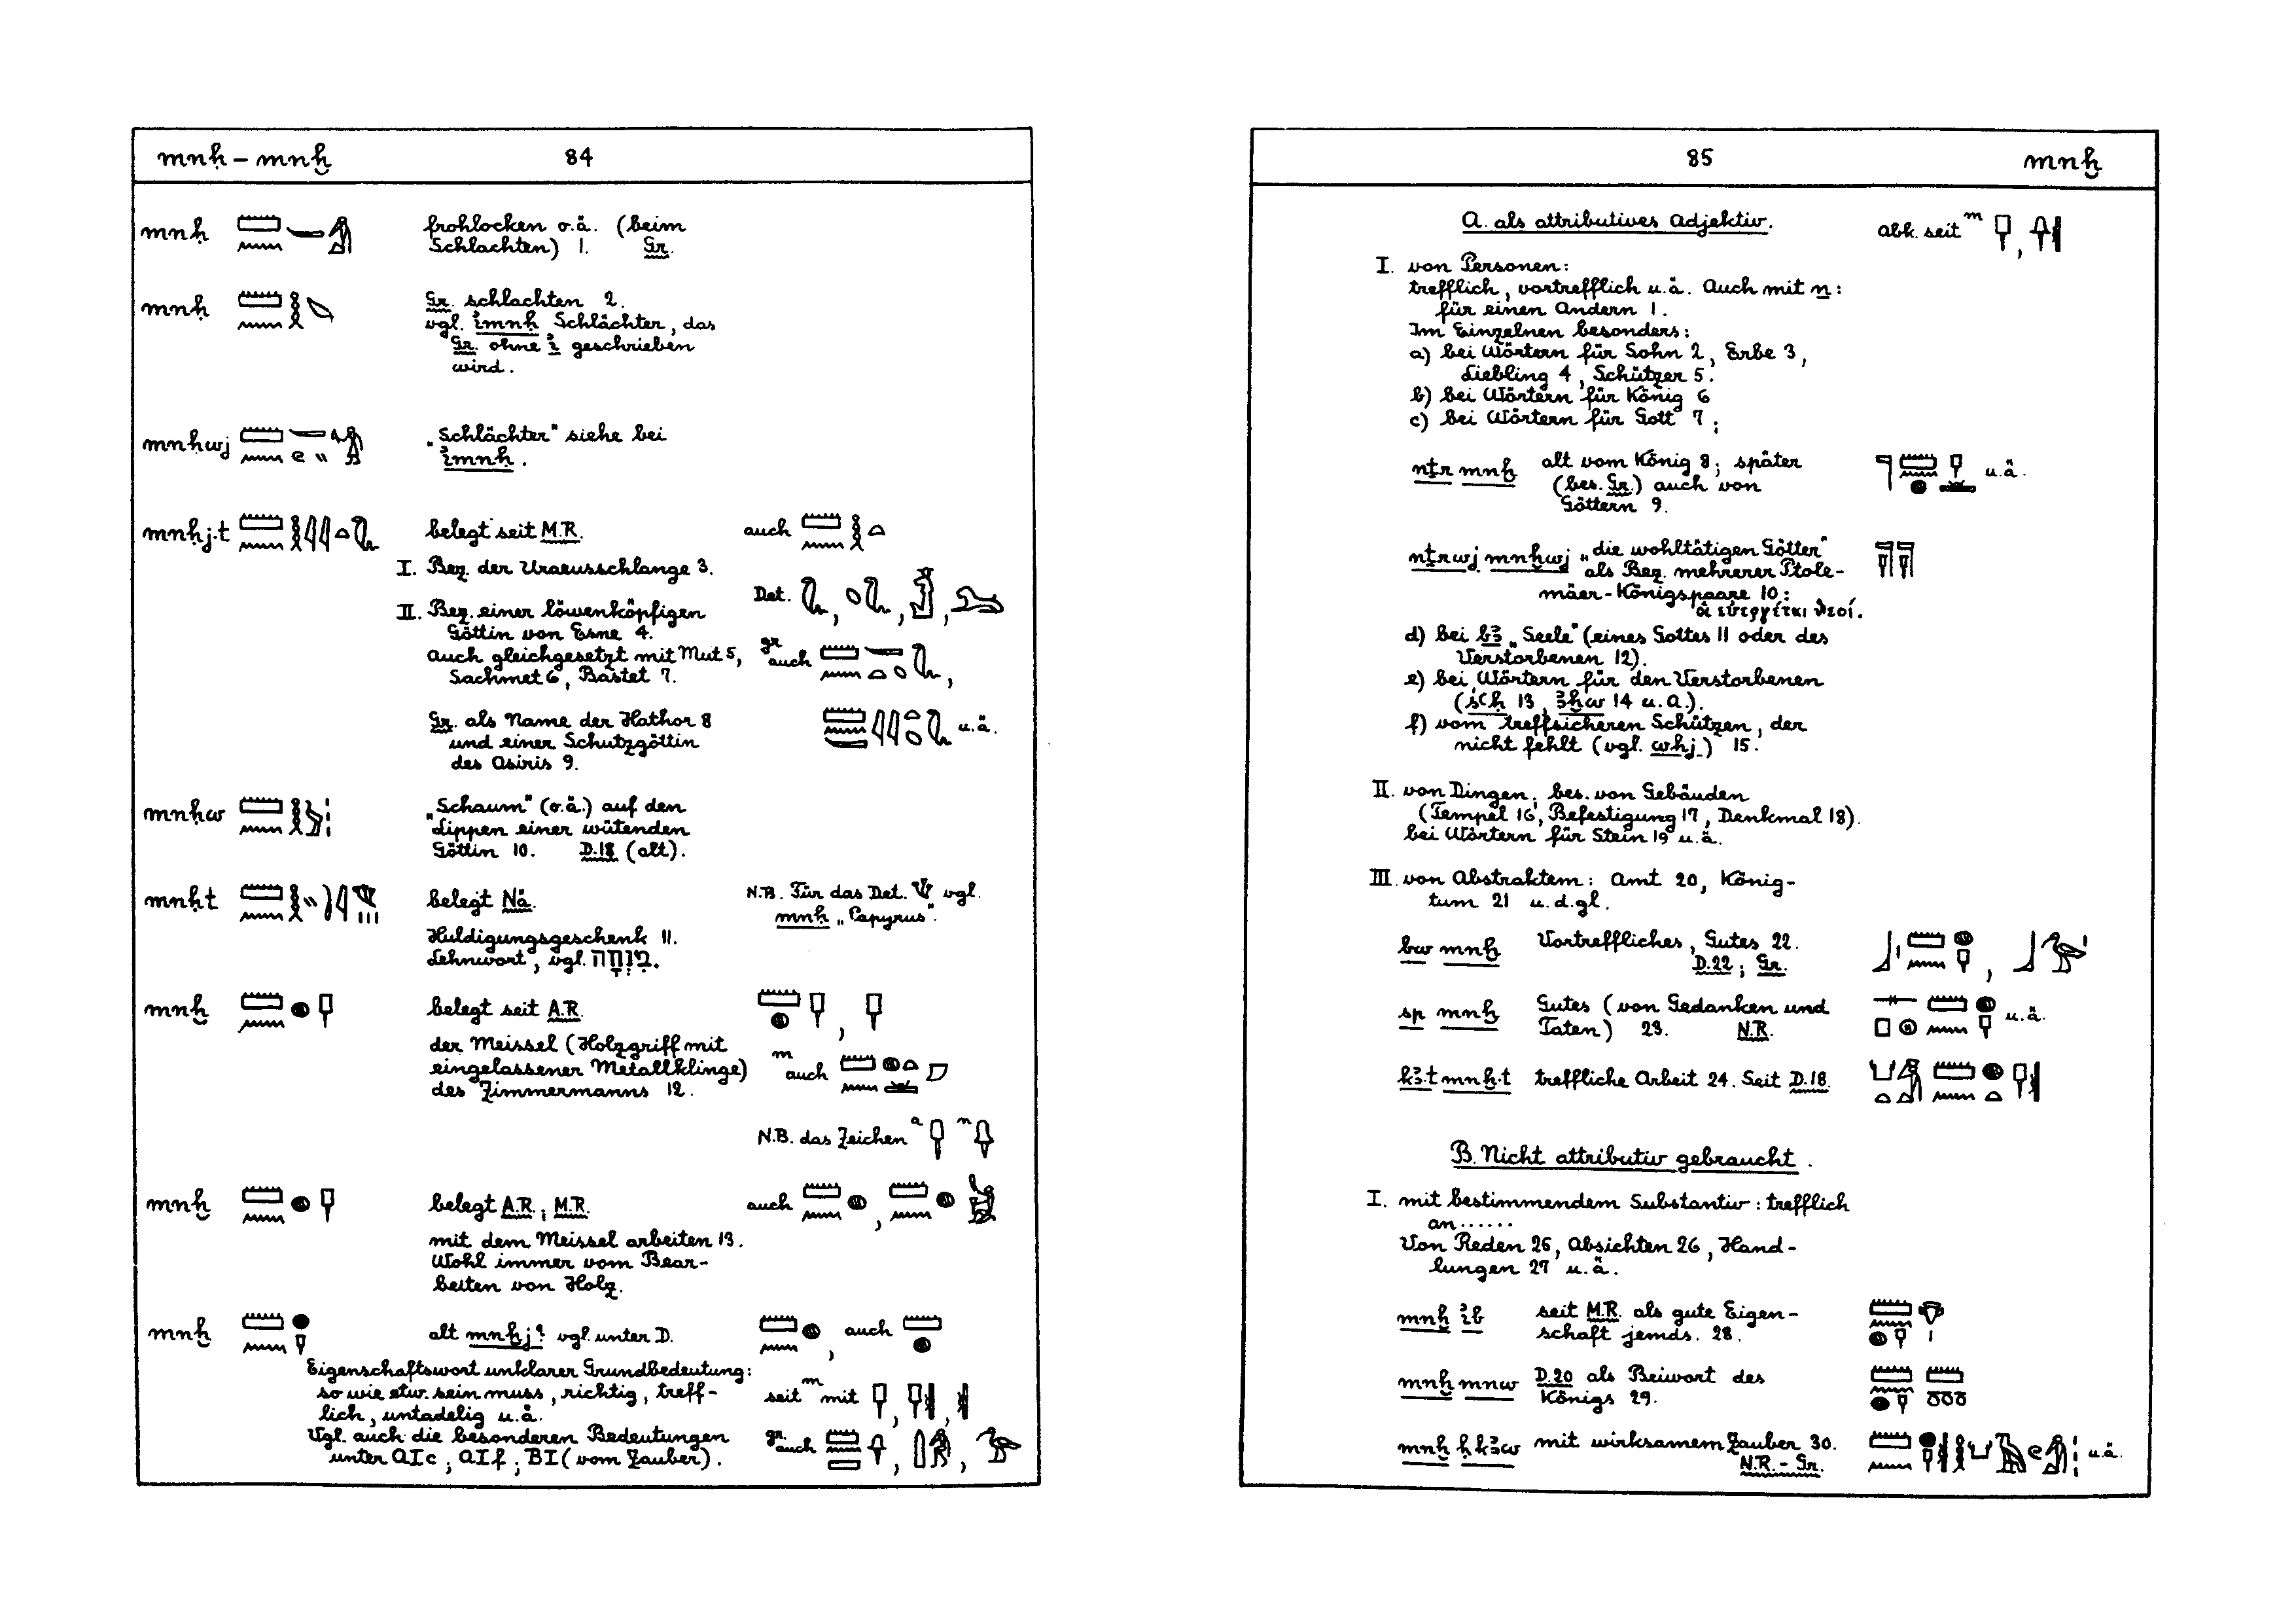 mnḥ – mnḫ
84
mnḥ frohlocken o.ä. (beim
Schlachten) 1. Gr.
mnḥ Gr. schlachten 2.
vgl. i҆mnḥ Schlächter, das
Gr. ohne i҆ geschrieben
wird.
mnḥwj „Schlächter" siehe bei
i҆mnḥ.
mnḥj.t belegt seit M.R. auch
I. Bez. der Uraeusschlange 3.
Det.
II. Bez. einer löwenköpfigen
Göttin von Esne 4.
auch gleichgesetzt mit Mut 5, gr. auch
Sachmet 6, Bastet 7.
Gr. als Name der Hathor 8 u.ä.
und einer Schutzgöttin
des Osiris 9.
mnḥw „Schaum" (o.ä.) auf den
Lippen einer wütenden
Göttin 10. D.18 (alt).
mnḥt belegt Nä. N.B. Für das Det. vgl.
mnḥ „Papyrus".
Huldigungsgeschenk 11.
Lehnwort, vgl. מִנְחָה.
mnḫ belegt seit A.R.
der Meissel (Holzgriff mit
eingelassener Metallklinge) m auch
des Zimmermanns 12.
N.B. das Zeichen a n
mnḫ belegt A.R.; M.R. auch
mit dem Meissel arbeiten 13.
Wohl immer vom Bear-
beiten von Holz.
mnḫ alt mnḫj? vgl. unter D. auch
Eigenschaftswort unklarer Grundbedeutung:
so wie etw. sein muss, richtig, treff- seit m mit
lich, untadelig u.ä.
Vgl. auch die besonderen Bedeutungen gr. auch
unter A I c; A I f; B I (vom Zauber).
85
mnḫ
A. als attributives Adjektiv. abk. seit m
I. von Personen:
trefflich, vortrefflich u.ä. Auch mit n:
für einen Andern 1.
Im Einzelnen besonders:
a) bei Wörtern für Sohn 2, Erbe 3,
Liebling 4, Schützer 5.
b) bei Wörtern für König 6
c) bei Wörtern für Gott 7;
nṯr mnḫ alt vom König 8; später u.ä.
(bes. Gr.) auch von
Göttern 9.
nṯrwj mnḫwj „die wohltätigen Götter"
als Bez. mehrerer Ptole-
mäer-Königspaare 10:
οἱ εὐεργέται θεοί.
d) bei bꜣ „Seele" (eines Gottes 11 oder des
Verstorbenen 12).
e) bei Wörtern für den Verstorbenen
(śꜥḥ 13, ꜣḫw 14 u.a.).
f) vom treffsicheren Schützen, der
nicht fehlt (vgl. whj) 15.
II. von Dingen; bes. von Gebäuden
(Tempel 16, Befestigung 17, Denkmal 18).
bei Wörtern für Stein 19 u.ä.
III. von Abstraktem: Amt 20, König-
tum 21 u.d.gl.
bw mnḫ Vortreffliches, Gutes 22.
D.22; Gr.
sp mnḫ Gutes (von Gedanken und
Taten) 23. N.R. u.ä.
kꜣ.t mnḫ.t treffliche Arbeit 24. Seit D.18.
B. Nicht attributiv gebraucht.
I. mit bestimmendem Substantiv: trefflich
an ......
Von Reden 25, Absichten 26, Hand-
lungen 27 u.ä.
mnḫ i҆b seit M.R. als gute Eigen-
schaft jemds. 28.
mnḫ mnw D.20 als Beiwort des
Königs 29.
mnḫ ḥkꜣw mit wirksamem Zauber 30. u.ä.
N.R. - Gr.